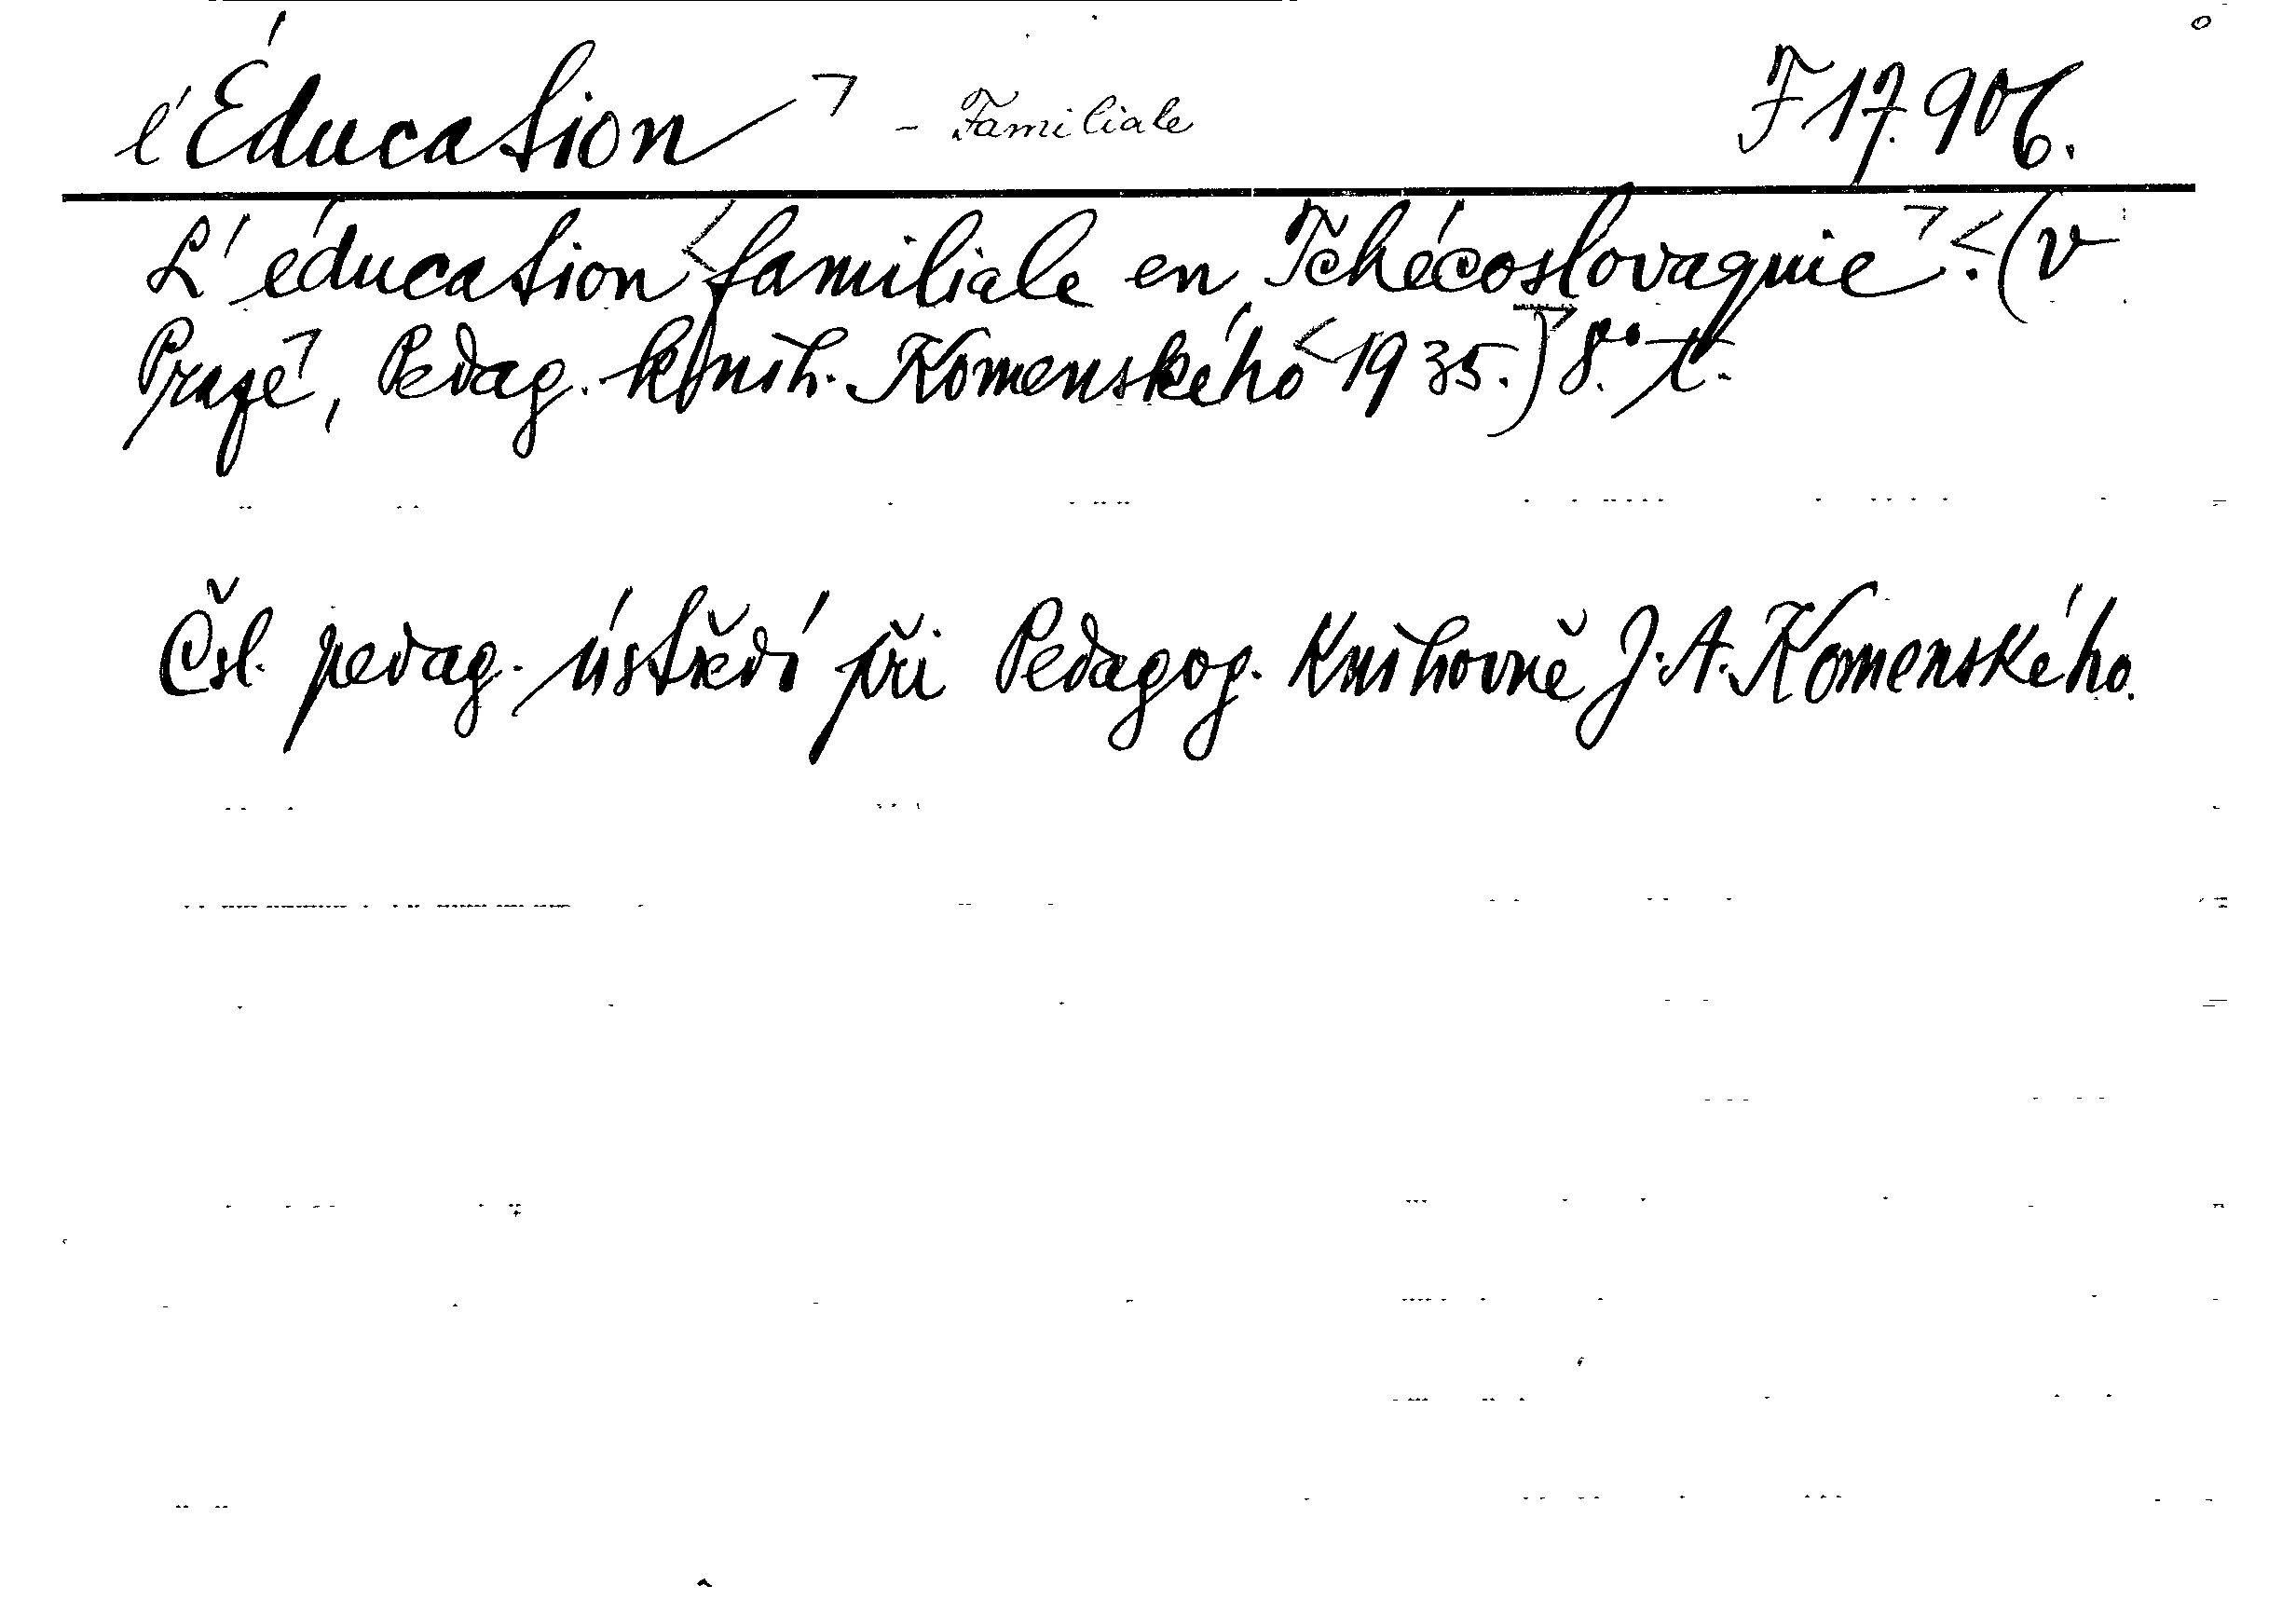 l'Éducation - Familiale F 17.906.
L'éducation familiale en Tchécoslovaquie. (V
Praze, Pedag. knih. Komenského 1935.) 8.° t.
Čsl. pedag. ústředí při Pedagog. Knihovně J. A. Komenského.